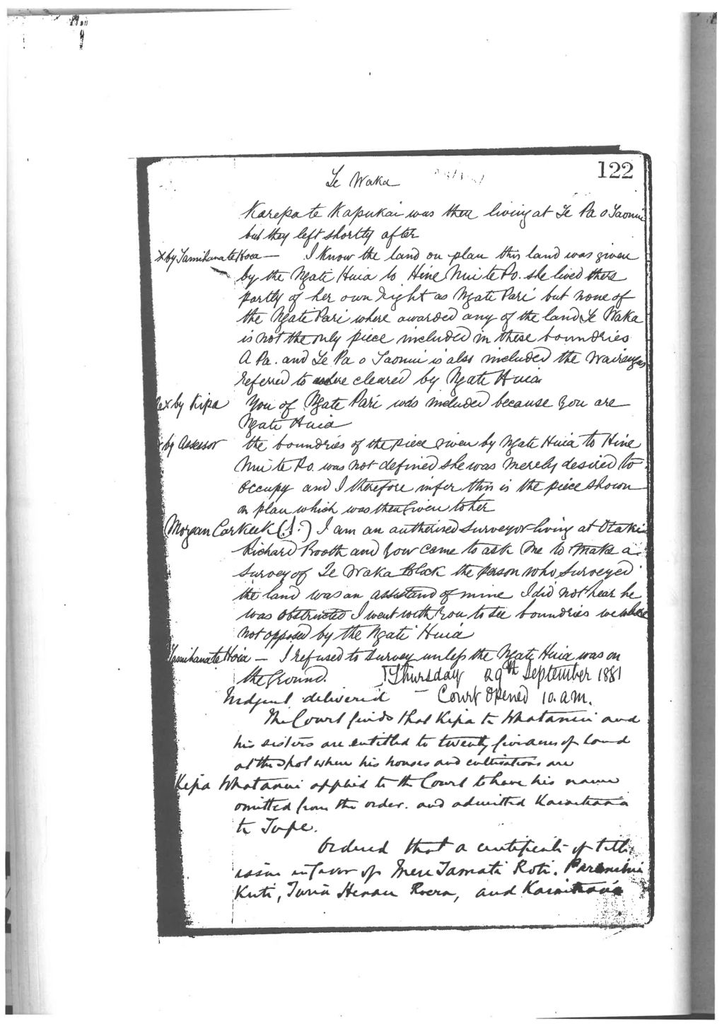 122
Te Waka
Karepa te Kapukai was then living at Te Pa o Taonui
but they left shortly after
x by Tamihana te Hoia — I know the land on plan this land was given
by the Ngate Huia to Hine Mui te Po. she lived there
partly of her own right as Ngate Pari but none of
the Ngate Pari where awarded any of the land Te Waka
is not the only piece included in these boundries
A Pa. and Te Pa o Taonui is also included the
referred to where cleared by Ngate Huia
Rex by Kipa You of Ngate Pari was included because you are
Ngate Huia
x by Assessor the boundries of the piece given by Ngate Huia to Hine
Mui te Po. was not defined she was merely desired to
occupy and I therefore infer this is the piece shown
on plan which was then given to her
Morgan Carkeek (S.) I am an authorised surveyor living at Otaki
Richard Booth and you came to ask me to make a
survey of Te Waka block the person who surveyed
the land was an assistend of mine I did not hear he
was obstructed I went with you to see boundries we where
not opposed by the Ngate Huia
Tamihana te Hoia — I refused to survey unless the Ngate Huia was on
the Ground. Thursday 29th September 1881
Judgment delivered — Court opened 10. a.m.
The Court finds that Kipa te Whatanui and
his sisters are entitled to twenty five acres of land
at the spot where his houses and cultivations are
Kipa Whatanui applied to the Court to have his name
omitted from the order. and admitted
te Tupe.
Ordered that a certificate of title
issue in favor of Mere Tamati Roti.
Kuti, Turia Henare Roera, and